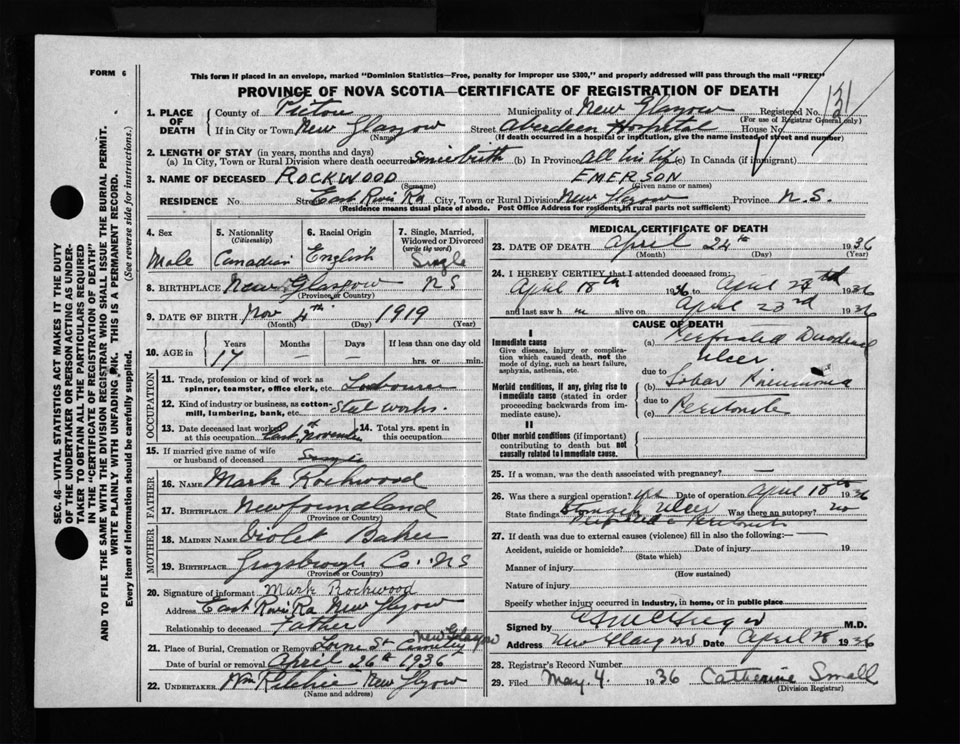 FORM 6
This form if placed in an envelope, marked "Dominion Statistics—Free, penalty for improper use $300," and properly addressed will pass through the mail "FREE"
PROVINCE OF NOVA SCOTIA—CERTIFICATE OF REGISTRATION OF DEATH
SEC. 46—VITAL STATISTICS ACT MAKES IT THE DUTY
OF THE UNDERTAKER OR PERSON ACTING AS UNDER-
TAKER TO OBTAIN ALL THE PARTICULARS REQUIRED
IN THE "CERTIFICATE OF REGISTRATION OF DEATH"
AND TO FILE THE SAME WITH THE DIVISION REGISTRAR WHO SHALL ISSUE THE BURIAL PERMIT.
WRITE PLAINLY WITH UNFADING INK. THIS IS A PERMANENT RECORD.
Every item of Information should be carefully supplied. (See reverse side for instructions.)
1. PLACE OF DEATH County of Pictou Municipality of New Glasgow Registered No. 131
(For use of Registrar General only)
If in City or Town New Glasgow Street Aberdeen Hospital House No.
(Name) (If death occurred in a hospital or institution, give the name instead of street and number)
2. LENGTH OF STAY (in years, months and days)
(a) In City, Town or Rural Division where death occurred Since birth (b) In Province All his life (c) In Canada (if immigrant)
3. NAME OF DECEASED ROCKWOOD EMERSON
(Surname) (Given name or names)
RESIDENCE No. Street East River Rd City, Town or Rural Division New Glasgow Province N.S.
(Residence means usual place of abode. Post Office Address for residents in rural parts not sufficient)
4. Sex 5. Nationality (Citizenship) 6. Racial Origin 7. Single, Married, Widowed or Divorced (write the word)
Male Canadian English Single
8. BIRTHPLACE New Glasgow NS
(Province or Country)
9. DATE OF BIRTH Nov 4th 1919
(Month) (Day) (Year)
10. AGE in Years Months Days If less than one day old
17 – – hrs. or min.
OCCUPATION
11. Trade, profession or kind of work as spinner, teamster, office clerk, etc. Labourer
12. Kind of industry or business, as cotton-mill, lumbering, bank, etc. Steel works.
13. Date deceased last worked at this occupation November 14. Total yrs. spent in this occupation
15. If married give name of wife or husband of deceased Single
FATHER
16. NAME Mark Rockwood
17. BIRTHPLACE Newfoundland
(Province or Country)
MOTHER
18. MAIDEN NAME Violet Baker
19. BIRTHPLACE Guysbrough Co. NS
(Province or Country)
20. Signature of informant Mark Rockwood
Address East River Rd New Glasgow
Relationship to deceased Father
21. Place of Burial, Cremation or Removal Lorne St Cemetery New Glasgow
Date of burial or removal April 26th 1936
22. UNDERTAKER Wm Ritchie New Glasgow
(Name and address)
MEDICAL CERTIFICATE OF DEATH
23. DATE OF DEATH April 24th 1936
(Month) (Day) (Year)
24. I HEREBY CERTIFY that I attended deceased from:
April 18th 1936 to April 1936
and last saw h m alive on April 23rd 1936
CAUSE OF DEATH
I
Immediate cause
Give disease, injury or complication which caused death, not the mode of dying, such as heart failure, asphyxia, asthenia, etc.
(a) Perforated Duodenal Ulcer
due to
Morbid conditions, if any, giving rise to immediate cause (stated in order proceeding backwards from immediate cause).
(b) Lobar Pneumonia
due to
(c) Peritonitis
II
Other morbid conditions (if important) contributing to death but not causally related to immediate cause.
25. If a woman, was the death associated with pregnancy? —
26. Was there a surgical operation? yes Date of operation April 18th 1936
State findings Stomach Ulcer Was there an autopsy? no
Perforated c Peritonitis
27. If death was due to external causes (violence) fill in also the following:— —
Accident, suicide or homicide? Date of injury 19
(State which)
Manner of injury
(How sustained)
Nature of injury
Specify whether injury occurred in industry, in home, or in public place
Signed by M.D.
Address New Glasgow Date April 1936
28. Registrar's Record Number
29. Filed May. 4. 1936 Catherine Small
(Division Registrar)